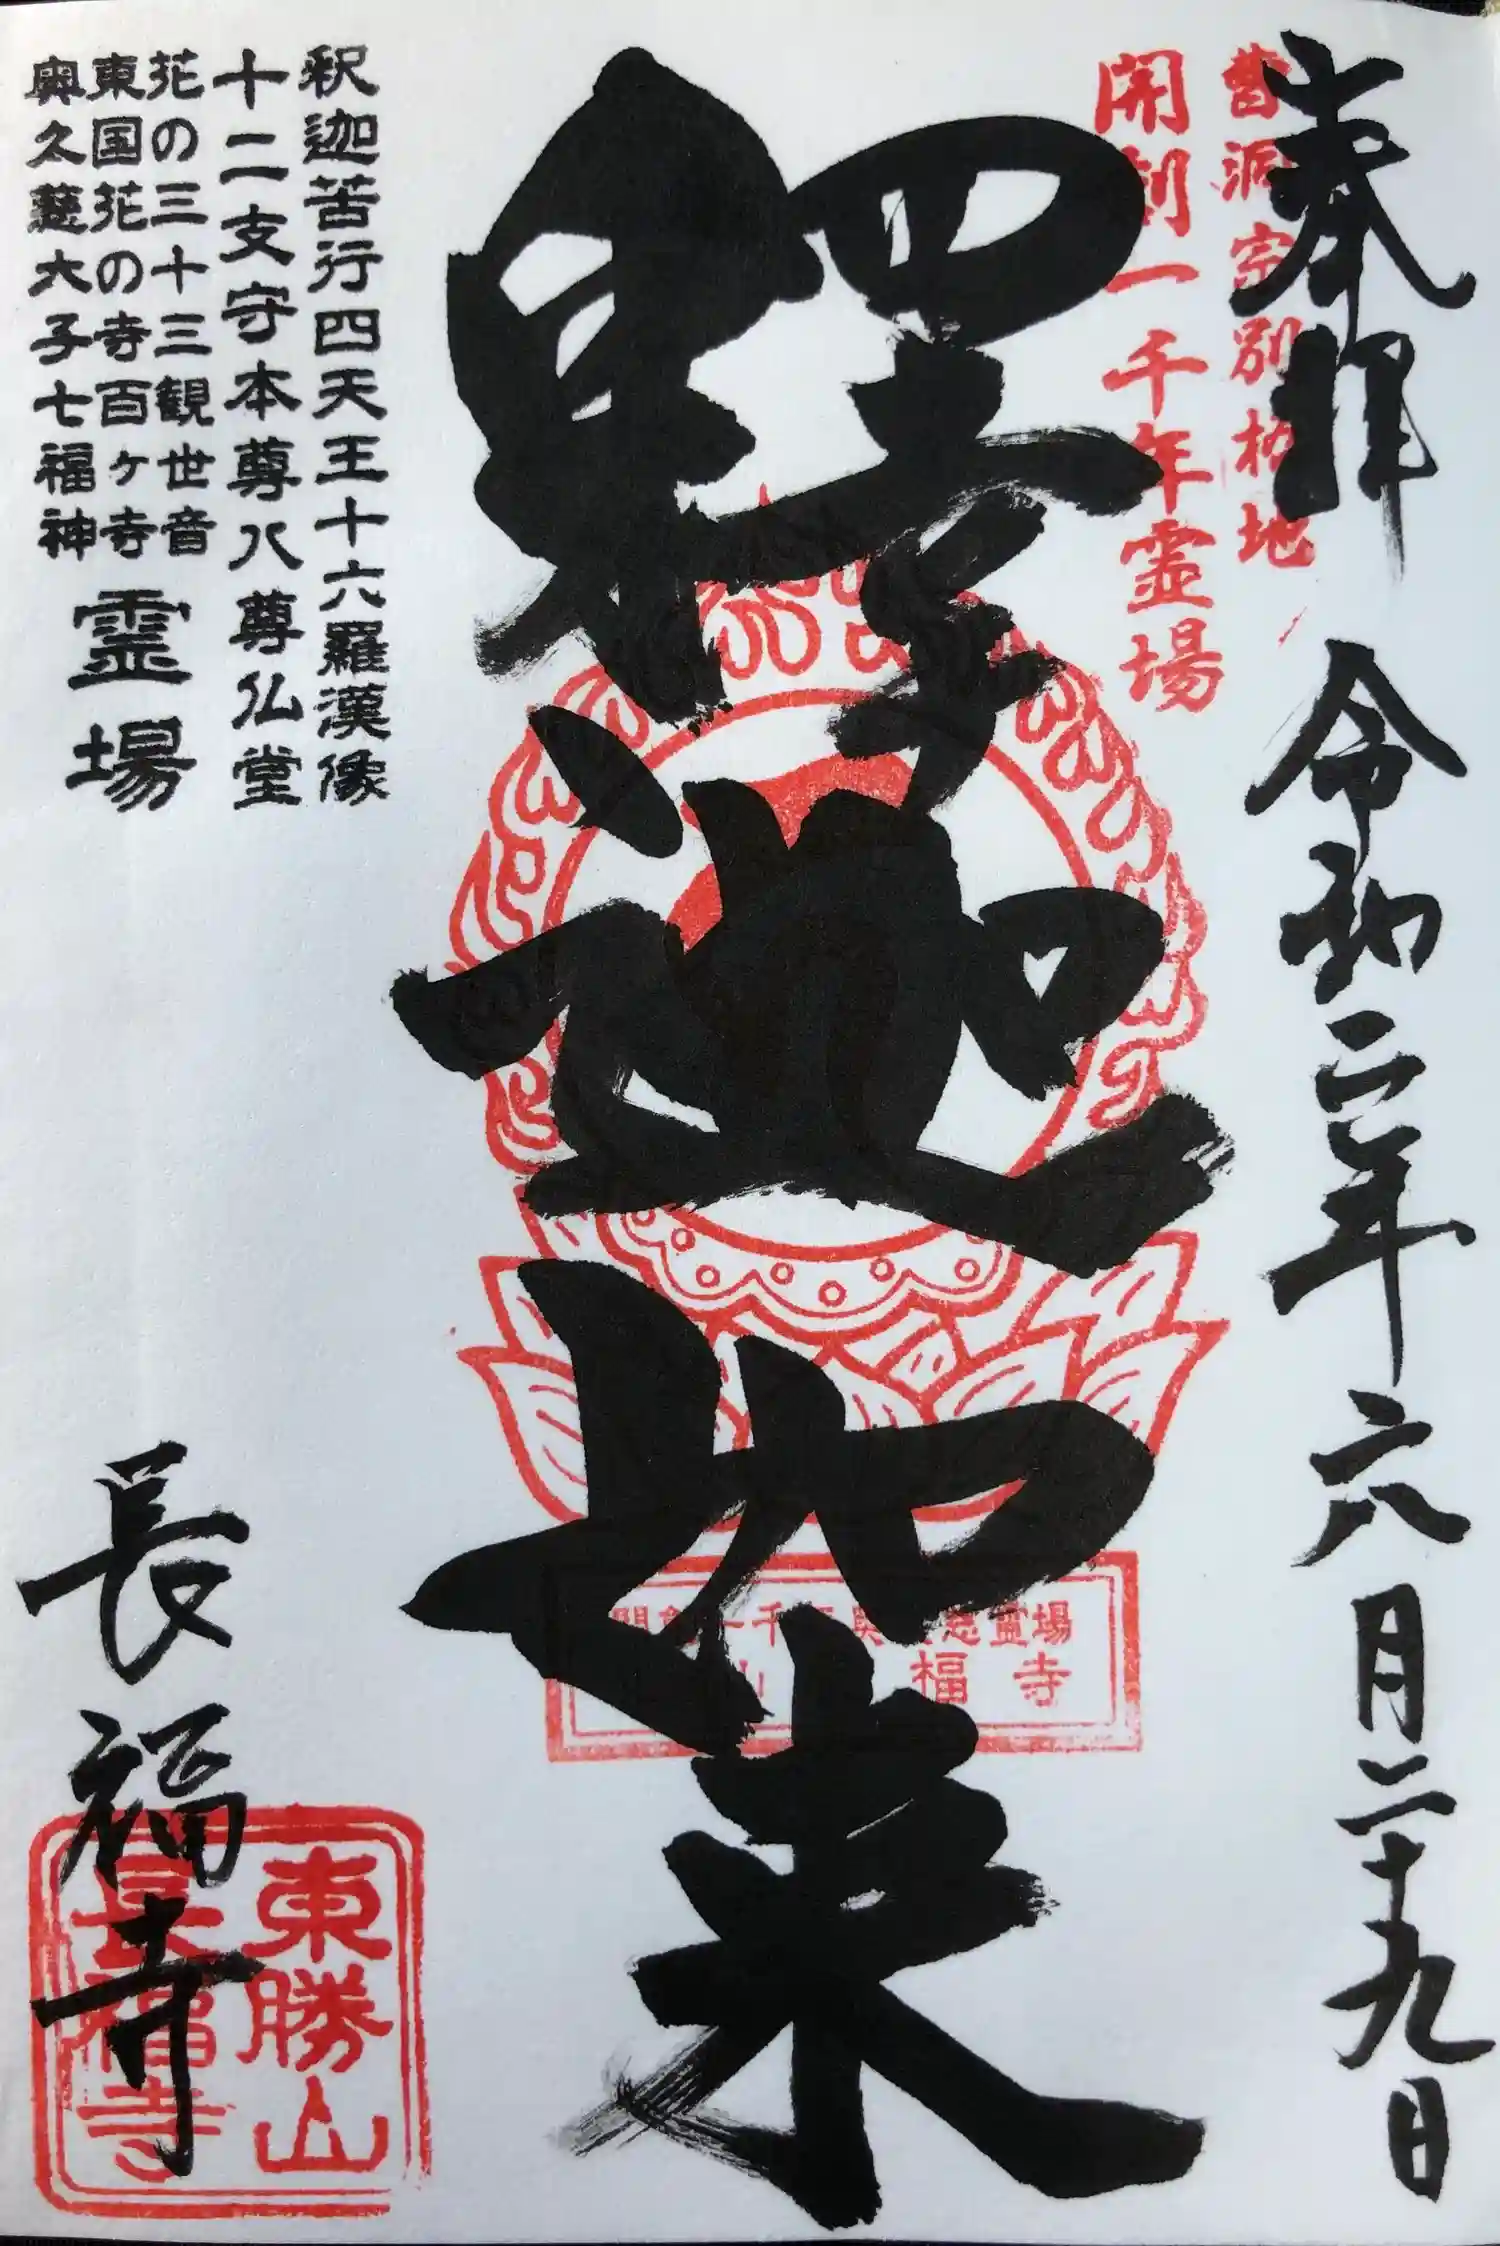 奉拝 令和二年六月二十九日
曹洞宗別格地
開創一千年霊場
釋迦如来
釈迦苦行四天王十六羅漢像
十二支守本尊八尊仏堂
花の三十三観世音
東国花の寺百ヶ寺
奥久慈大子七福神
霊場
長福寺
霊場
福寺
東勝山
長福寺